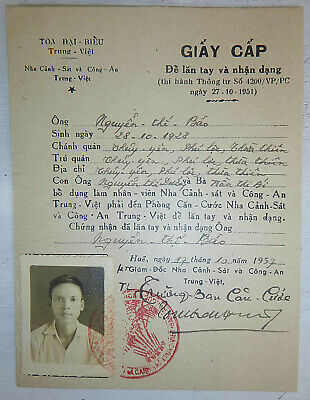 TOA ĐẠI-BIỂU
Trung-Việt
Nha Cảnh-Sát và Công-An
Trung-Việt
GIẤY CẤP
Để lăn tay và nhận dạng
(thi hành Thông tư Số 4200/VP/PC
ngày 27-10-1951)
Ông Nguyễn-thế-Bảo
Sinh ngày 28-10-1923
Chánh quán Thủy-yên, Phú lộc, Thừa thiên
Trú quán Thủy-yên, Phú lộc, Thừa thiên
Địa chỉ Thủy-yên, Phú lộc, Thừa thiên
Con Ông Nguyễn và Bà Trần thị
bổ dụng làm nhân-viên Nha Cảnh-Sát và Công-An
Trung-Việt phải đến Phòng Căn-Cước Nha Cảnh-Sát
và Công-An Trung-Việt để lăn tay và nhận dạng.
Chứng nhận đã lăn tay và nhận dạng Ông
Nguyễn-thế-Bảo
Huế, ngày 17 tháng 10 năm 1957
Giám-Đốc Nha Cảnh-Sát và Công-An
Trung-Việt,
TL Trưởng Ban Căn-Cước